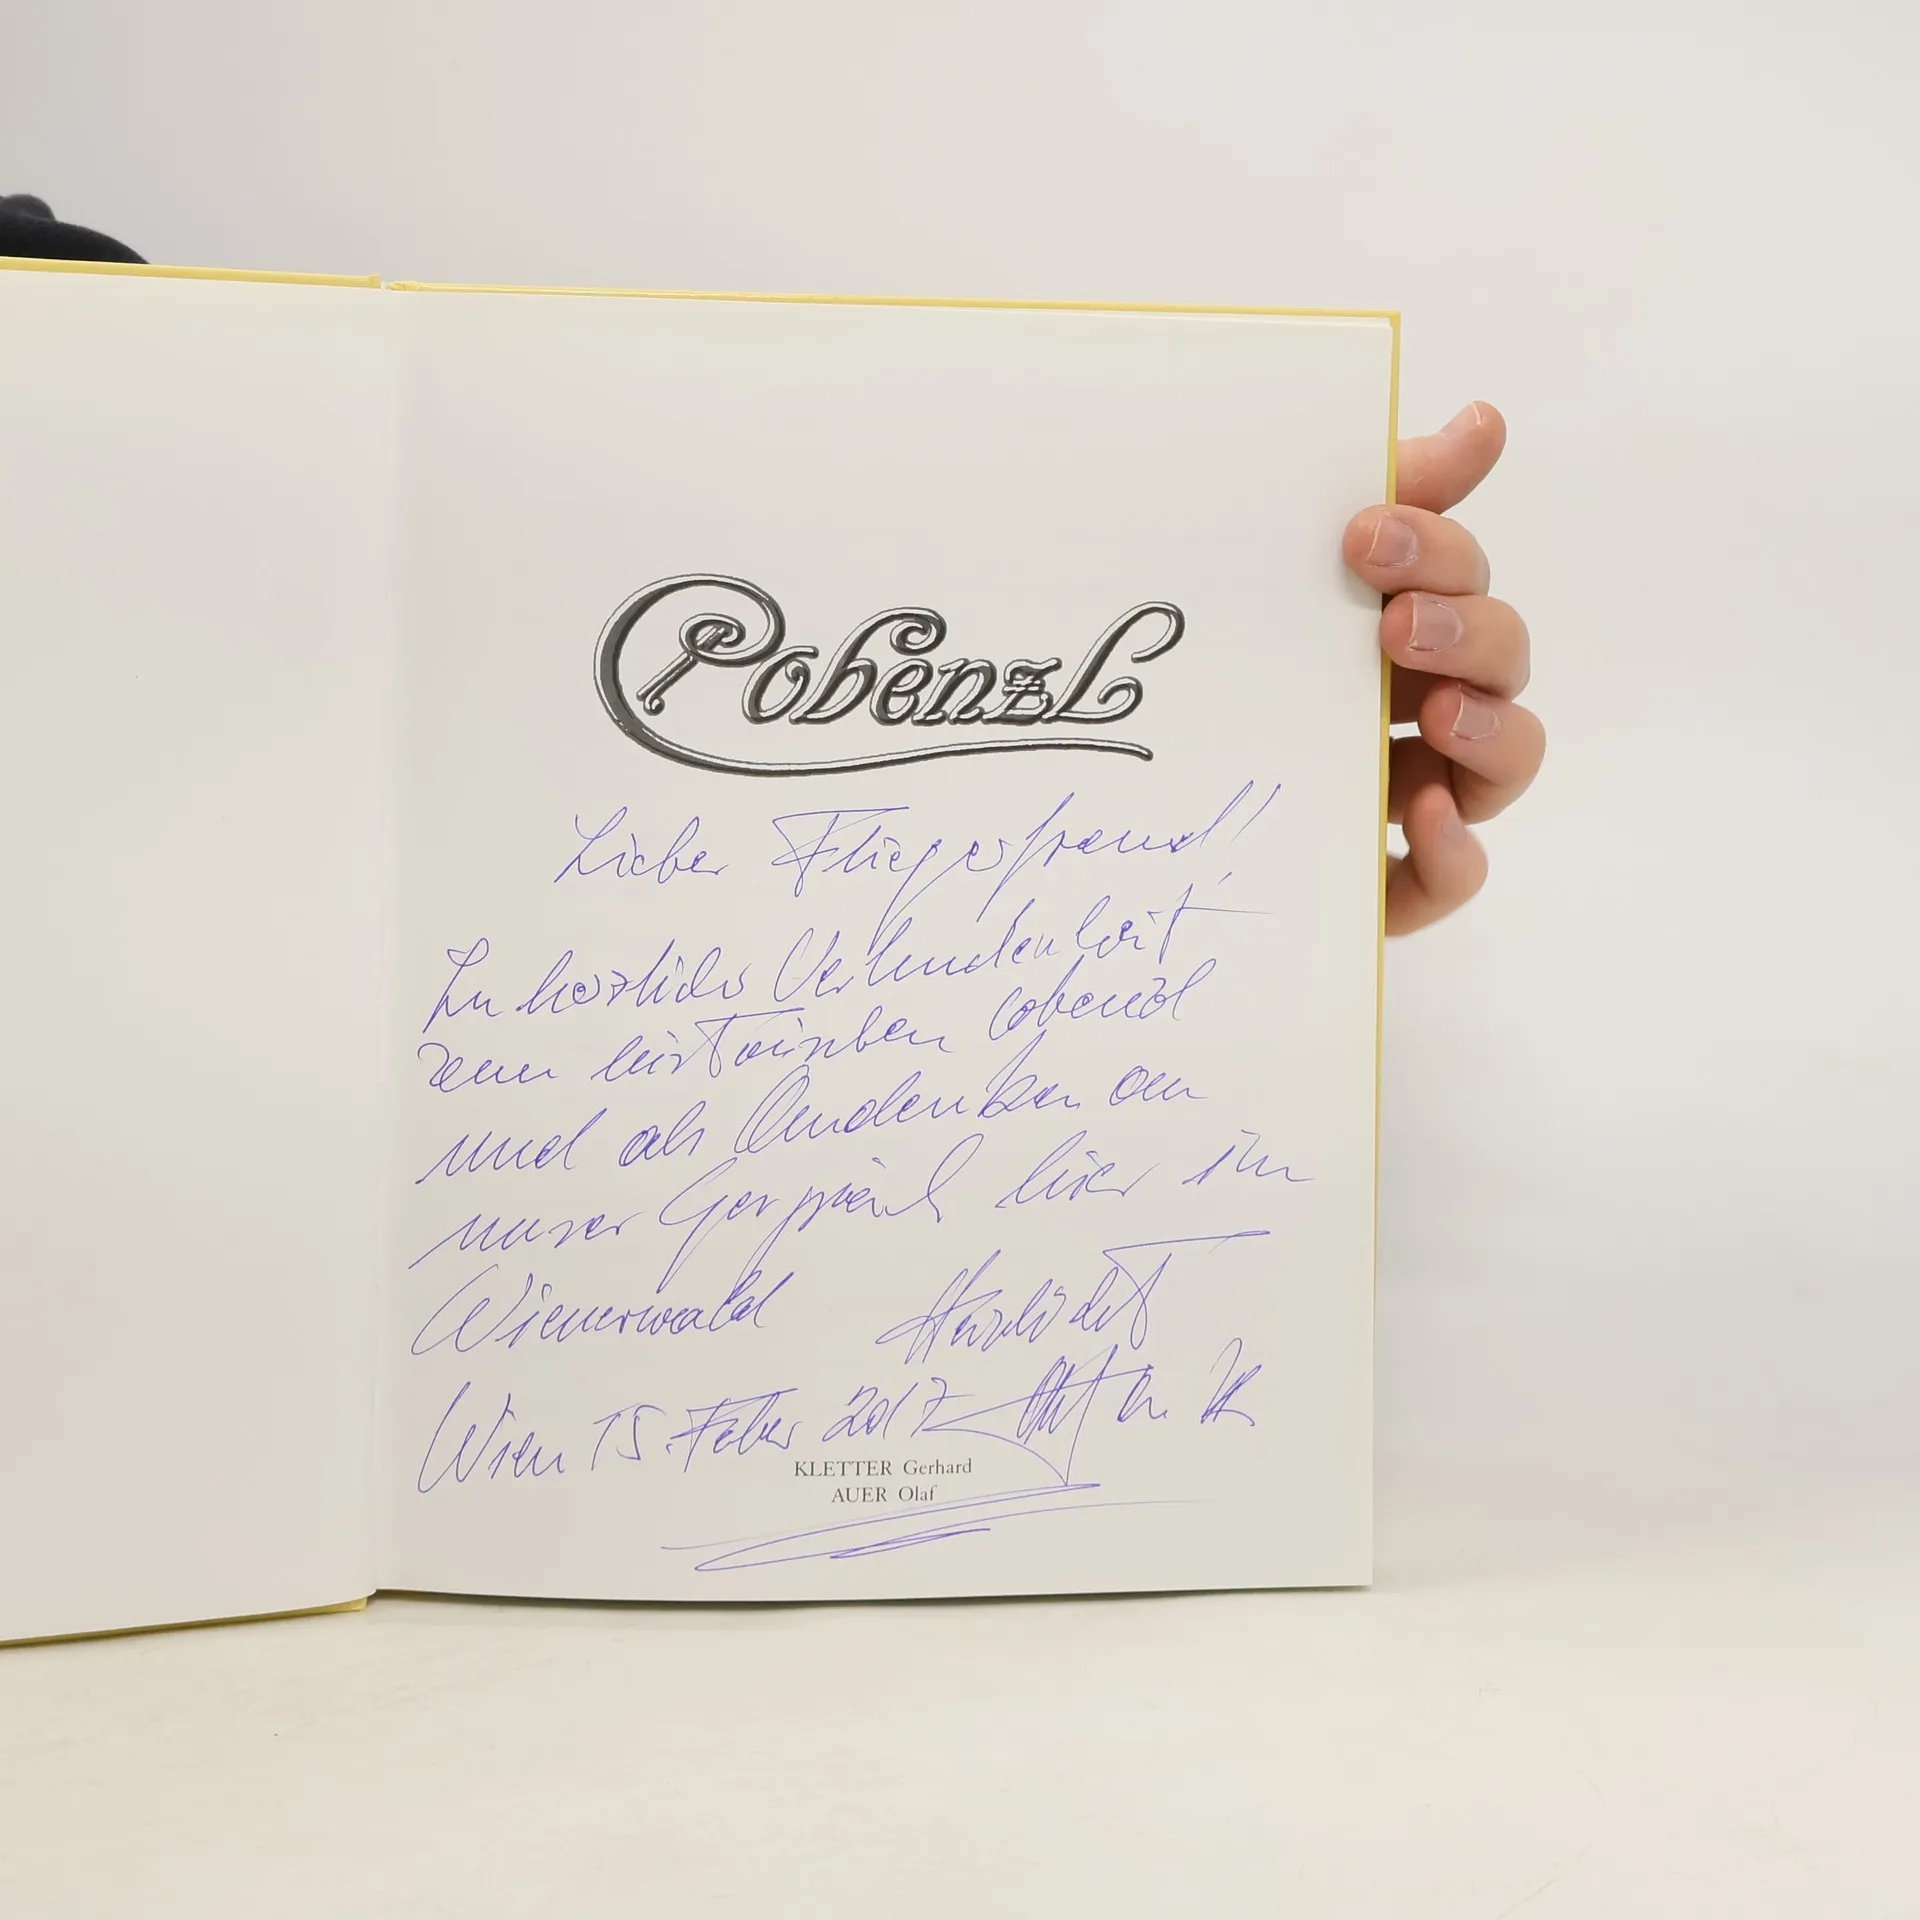 Cobenzl
Lieber Fliegerfreund!
In herzlicher Verbundenheit
zum historischen Cobenzl
und als Andenken an
unser Gespräch hier im
Wienerwald Herzlichst
Wien 15. Feber 2017
KLETTER Gerhard
AUER Olaf